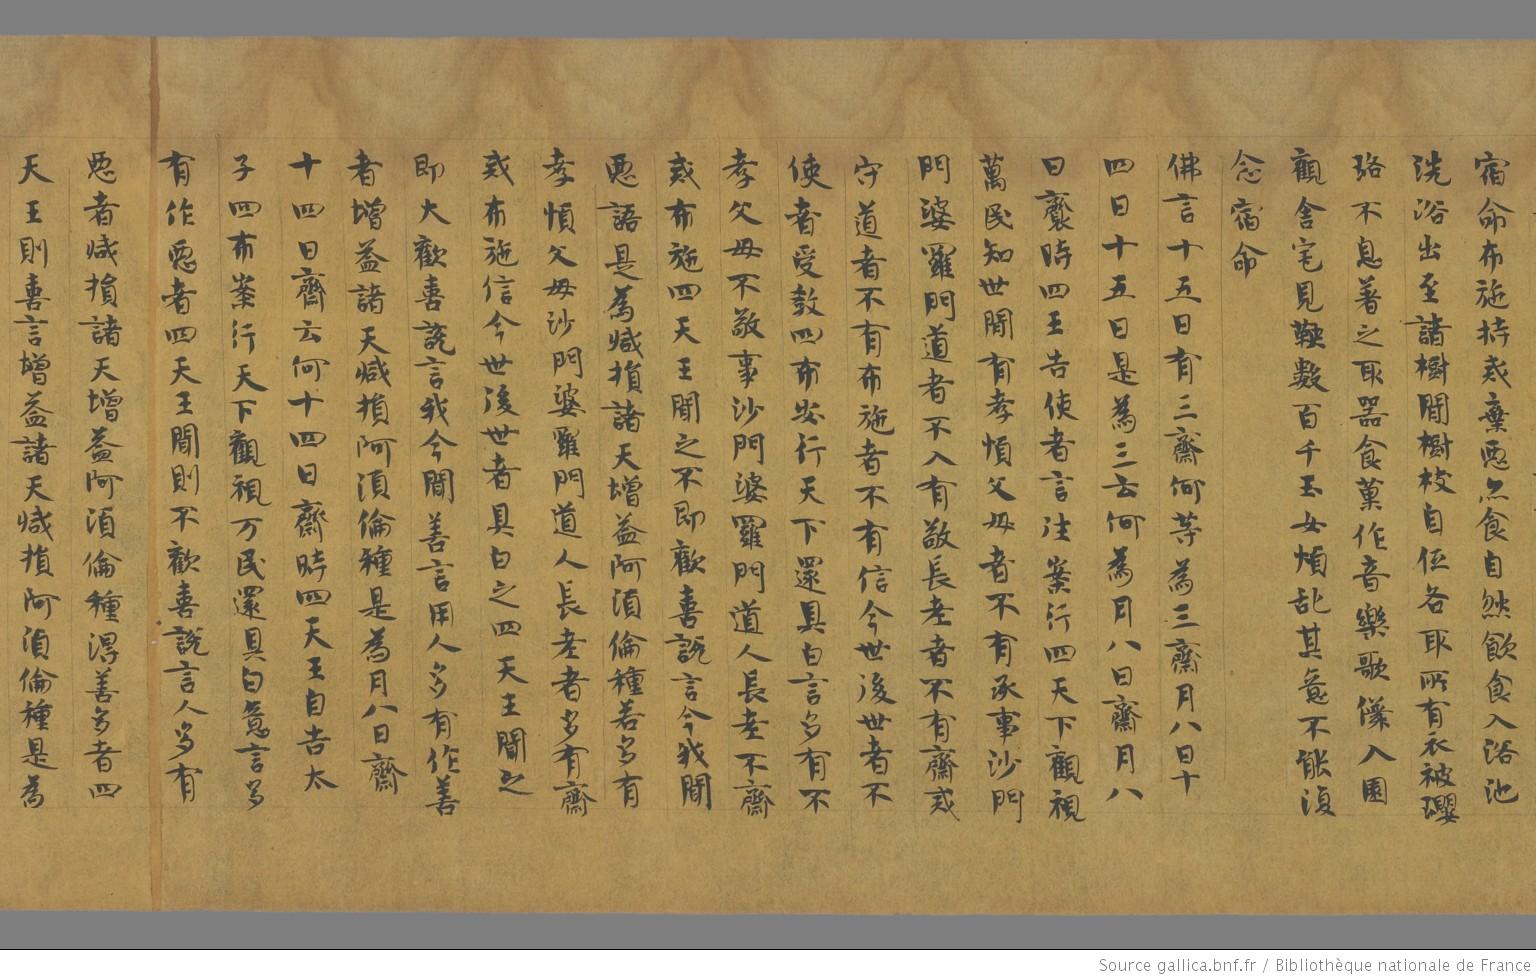 宿命布施持戒棄惡亦食自然飲食入浴池
洗浴出至諸樹閒樹枝自伍各取所有衣被瓔
珞不息著之取器食菓作音樂歌儛入園
觀舍宅見鞕數百千玉女煩乱其意不能復
念宿命
佛言十五日有三齋何等為三齋月八日十
四日十五日是為三云何為月八日齋月八
日齋時四王告使者言汝案行四天下觀視
萬民知世閒有孝順父母者不有承事沙門
門婆羅門道者不入有敬長老者不有齋戒
守道者不有布施者不有信今世後世者不
使者受教四布案行天下還具白言多有不
孝父母不敬事沙門婆羅門道人長老不齋
戒布施四天王聞之不即歡喜說言今我聞
惡語是為減損諸天增益阿湏倫種若多有
孝順父母沙門婆羅門道人長老者多有齋
戒布施信今世後世者具白之四天王聞之
即大歡喜說言我今聞善言用人多有作善
者增益諸天減損阿湏倫種是為月八日齋
十四日齋云何十四日齋時四天王自告太
子四布案行天下觀視万民還具白意言多
有作惡者四天王聞則不歡喜說言人多有
惡者減損諸天增益阿湏倫種得善多者四
天王則喜言增益諸天減損阿湏倫種是為